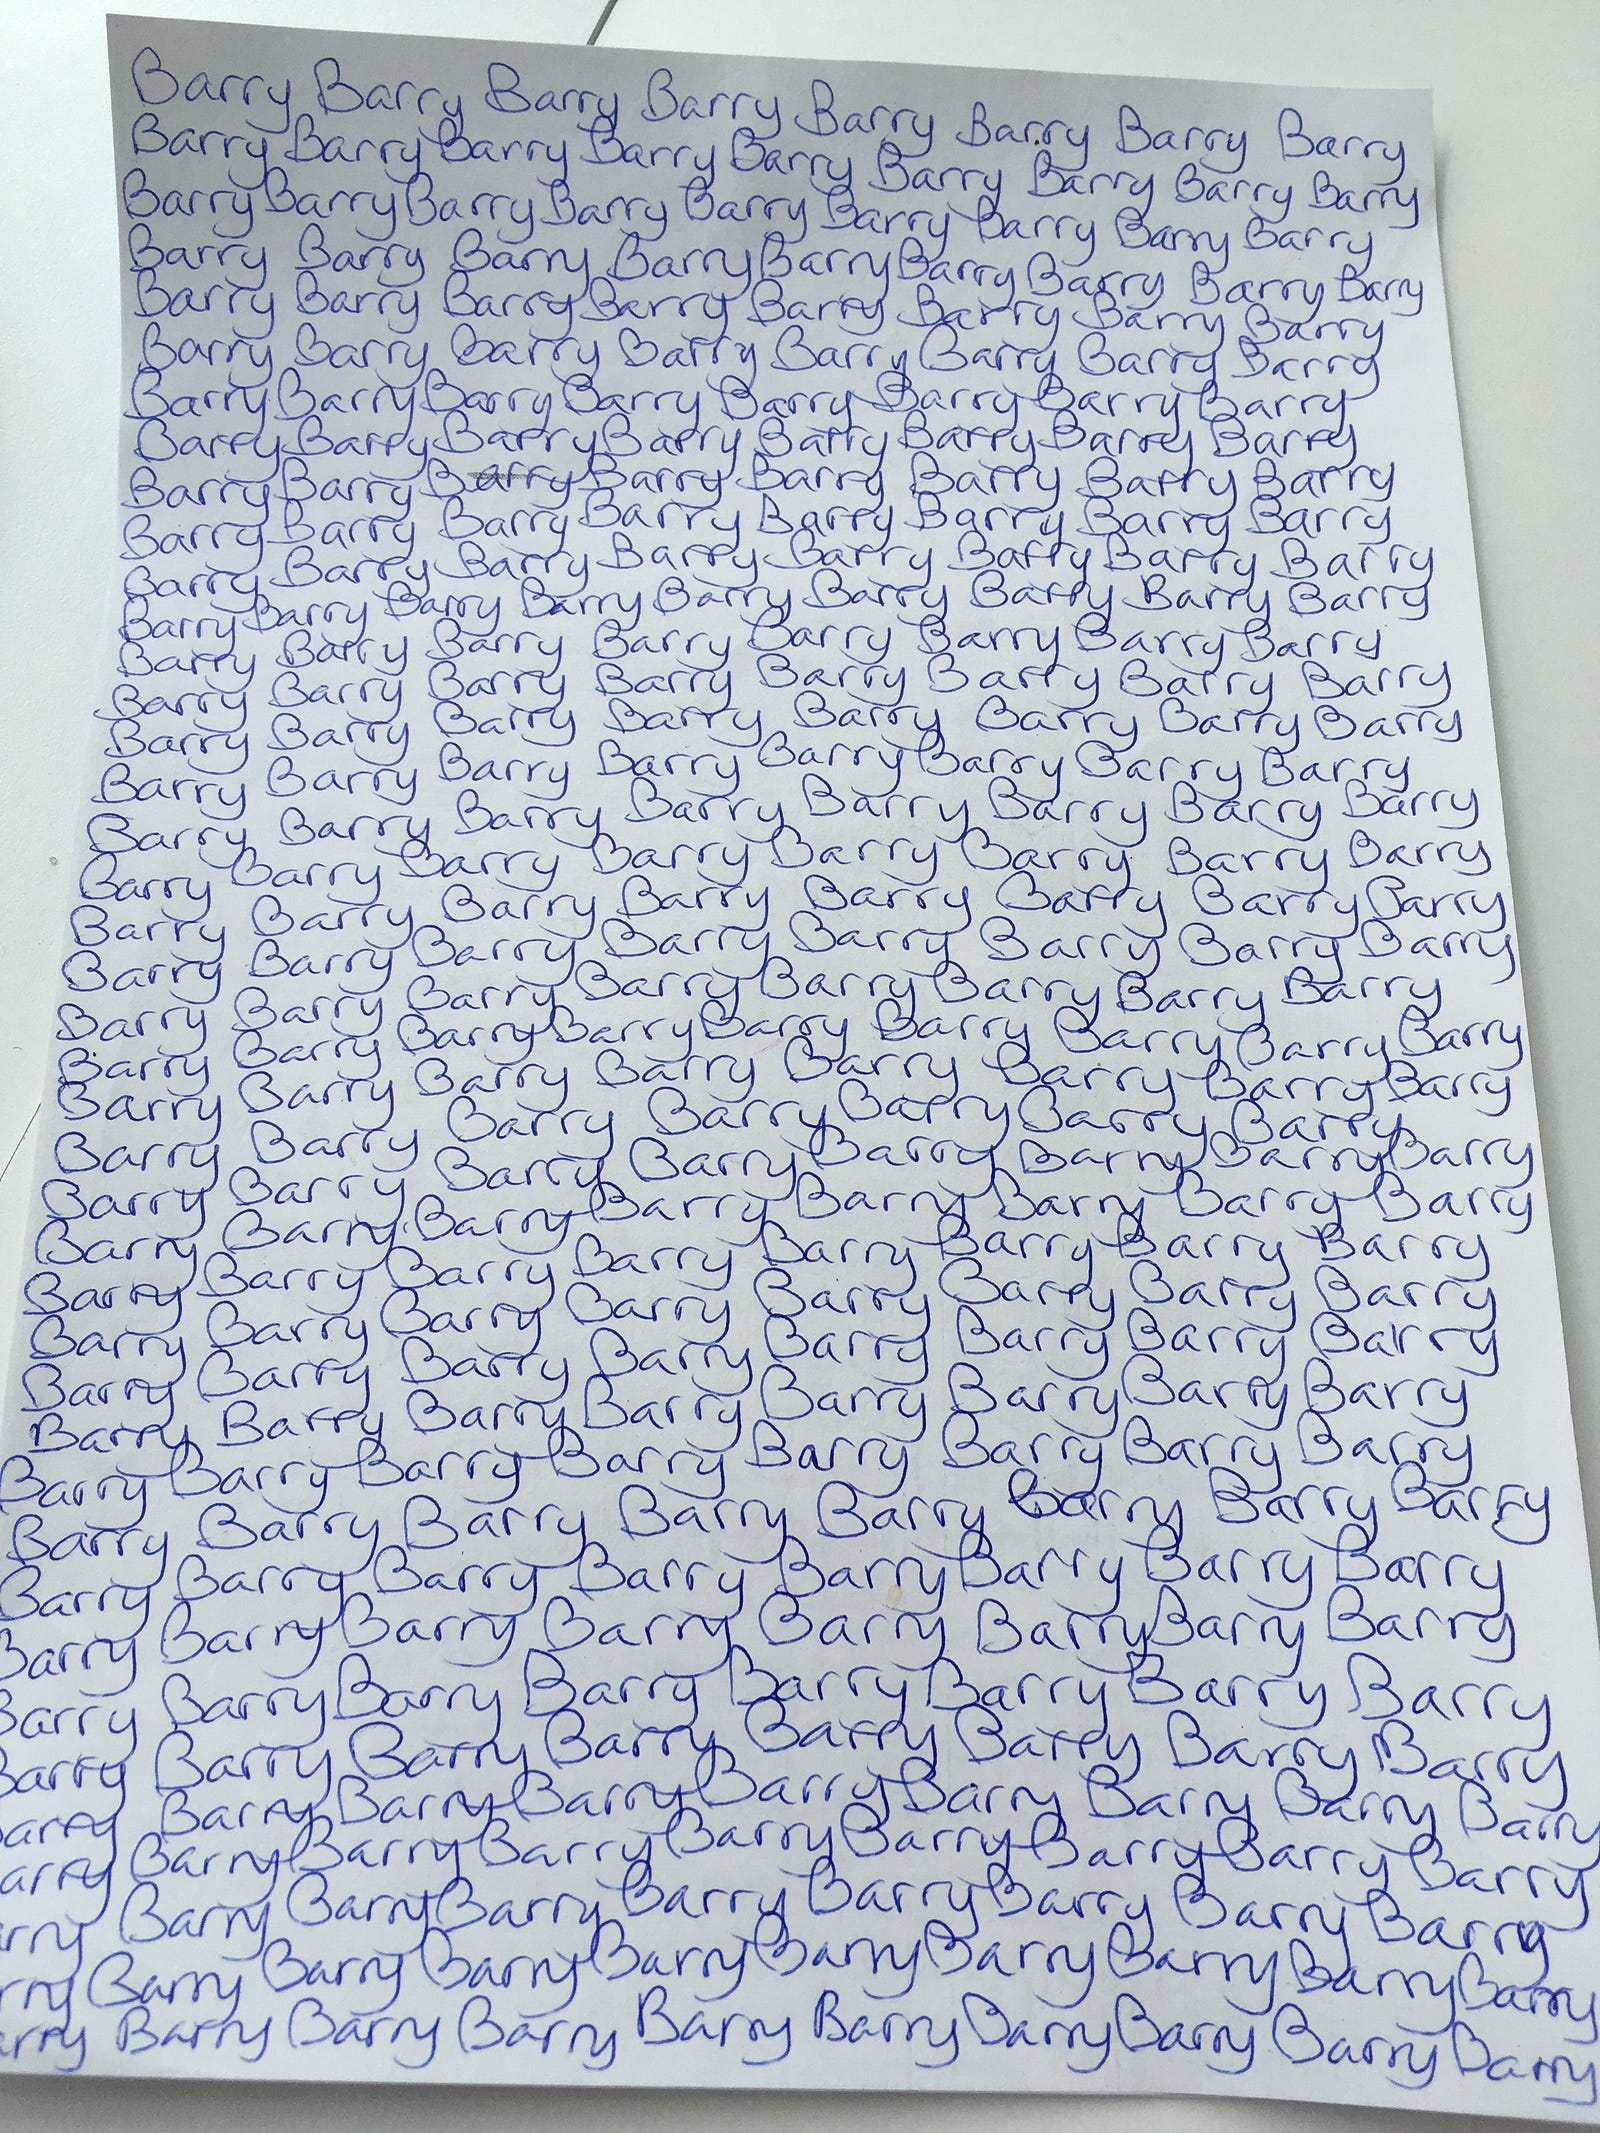 Barry Barry Barry Barry Barry Barry Barry Barry
Barry Barry Barry Barry Barry Barry Barry Barry Barry
Barry Barry Barry Barry Barry Barry Barry Barry Barry
Barry Barry Barry Barry Barry Barry Barry Barry Barry
Barry Barry Barry Barry Barry Barry Barry Barry
Barry Barry Barry Barry Barry Barry Barry Barry
Barry Barry Barry Barry Barry Barry Barry Barry
Barry Barry Barry Barry Barry Barry Barry Barry
Barry Barry Barry Barry Barry Barry Barry Barry
Barry Barry Barry Barry Barry Barry Barry Barry
Barry Barry Barry Barry Barry Barry Barry Barry
Barry Barry Barry Barry Barry Barry Barry Barry Barry
Barry Barry Barry Barry Barry Barry Barry Barry
Barry Barry Barry Barry Barry Barry Barry Barry
Barry Barry Barry Barry Barry Barry Barry Barry
Barry Barry Barry Barry Barry Barry Barry Barry
Barry Barry Barry Barry Barry Barry Barry Barry
Barry Barry Barry Barry Barry Barry Barry Barry
Barry Barry Barry Barry Barry Barry Barry Barry
Barry Barry Barry Barry Barry Barry Barry Barry
Barry Barry Barry Barry Barry Barry Barry Barry
Barry Barry Barry Barry Barry Barry Barry Barry Barry
Barry Barry Barry Barry Barry Barry Barry Barry
Barry Barry Barry Barry Barry Barry Barry
Barry Barry Barry Barry Barry Barry Barry Barry
Barry Barry Barry Barry Barry Barry Barry Barry
Barry Barry Barry Barry Barry Barry Barry Barry
Barry Barry Barry Barry Barry Barry Barry Barry
Barry Barry Barry Barry Barry Barry Barry Barry
Barry Barry Barry Barry Barry Barry Barry Barry
Barry Barry Barry Barry Barry Barry Barry Barry
Barry Barry Barry Barry Barry Barry Barry Barry
Barry Barry Barry Barry Barry Barry Barry Barry
Barry Barry Barry Barry Barry Barry Barry Barry
Barry Barry Barry Barry Barry Barry Barry Barry
Barry Barry Barry Barry Barry Barry Barry Barry
arry Barry Barry Barry Barry Barry Barry Barry Barry
arry Barry Barry Barry Barry Barry Barry Barry Barry
rry Barry Barry Barry Barry Barry Barry Barry Barry
rry Barry Barry Barry Barry Barry Barry Barry Barry Barry
arry Barry Barry Barry Barry Barry Barry Barry Barry Barry